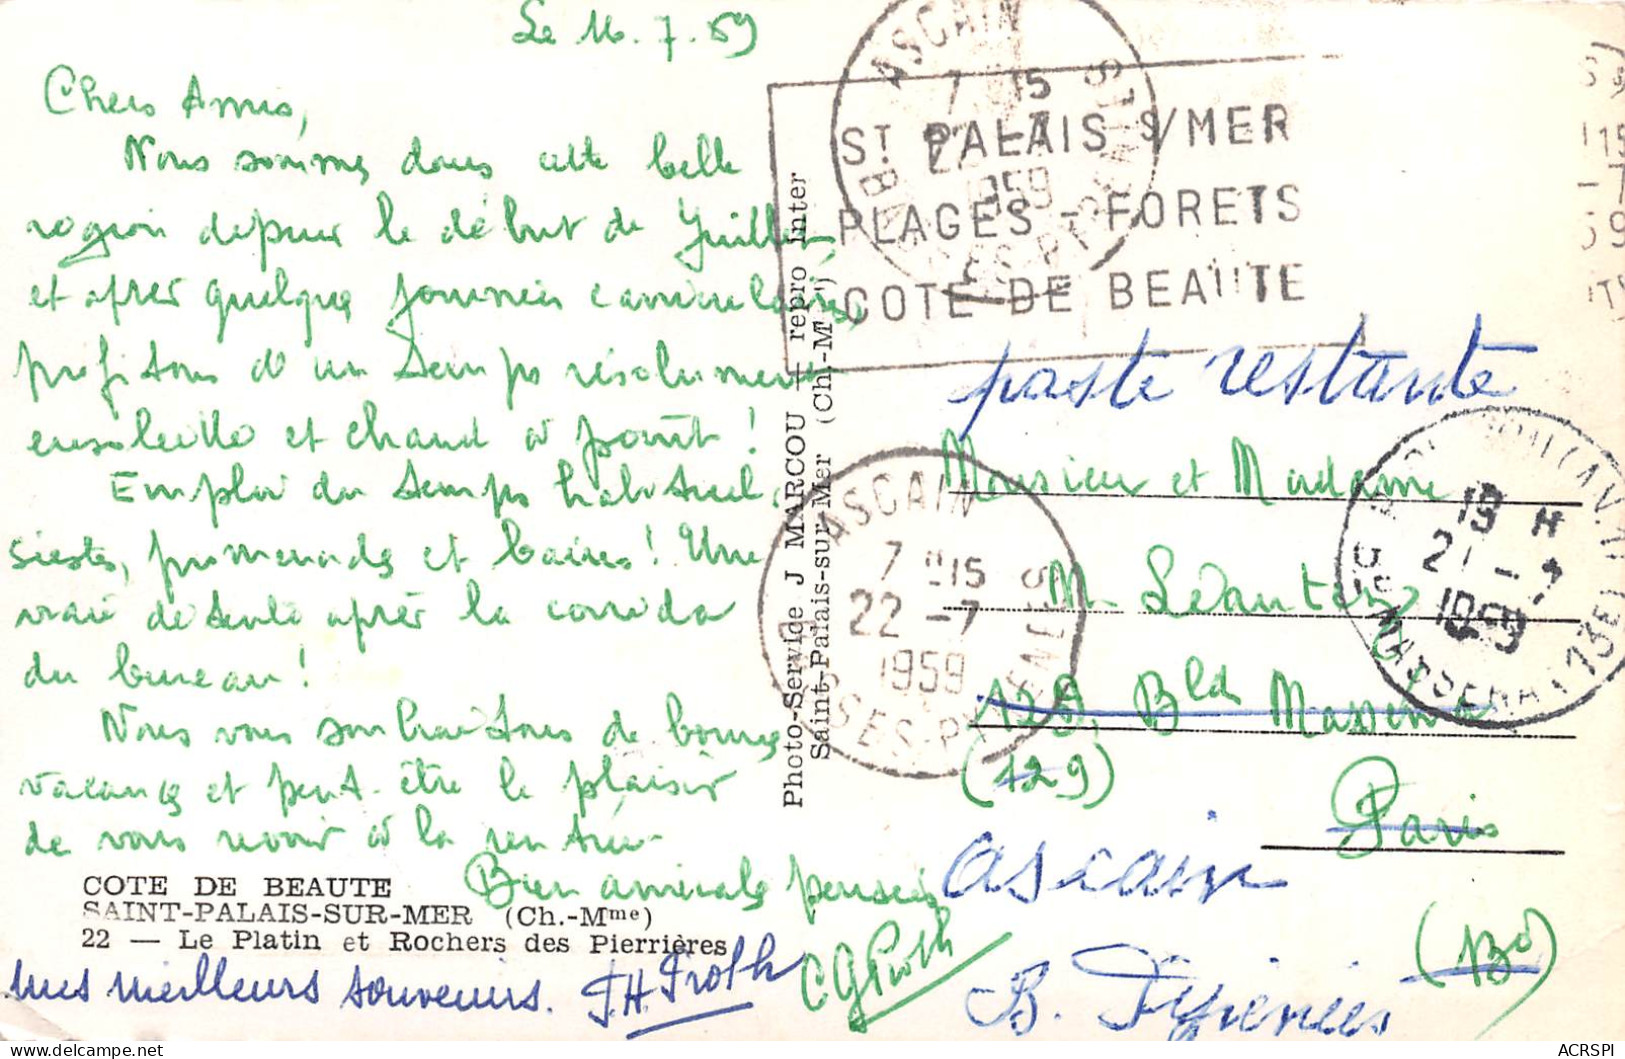 Le 16.7.59
Chers Amis,
Nous sommes dans cette belle
région depuis le début de Juillet
et après quelques journées caniculaires,
profitons d'un temps résolument
ensoleillé et chaud à point !
Emploi du temps habituel,
siestes, promenades et bains ! Une
vraie détente après la corrida
du bureau !
Nous vous souhaitons de bonnes
vacances et peut-être le plaisir
de vous revoir à la rentrée
Bien amicales pensées
mes meilleurs souvenirs.
COTE DE BEAUTE
SAINT-PALAIS-SUR-MER (Ch.-Mme)
22 — Le Platin et Rochers des Pierrières
Photo-Service J MARCOU — repro inter
Saint-Palais-sur-Mer (Ch.-Mme)
ST PALAIS S/MER
PLAGES - FORETS
COTE DE BEAUTE
ASCAIN
7 H15
22 -7
1959
BASSES-PYRENEES
ASCAIN
7 H15
22 -7
1959
BASSES-PYRENEES
19 H
21 -7
1959
Bd MASSENA (13E)
poste restante
Monsieur et Madame
M.
126, Bld Massena
(129)
Paris
Ascain
(13e)
B. Pyrénées
ACRSPI